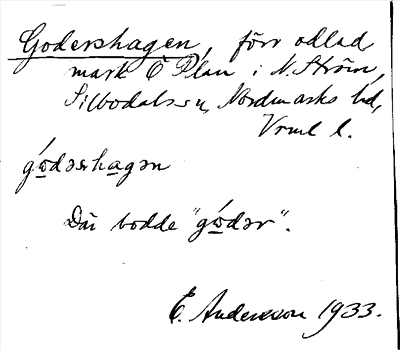 Godershagen, förr odlad
mark Ö Plan i N. Ström,
Silbodals sn, Nordmarks hd,
Vrml l.
gódərhagən
Där bodde "gódər".
E. Andersson 1933.